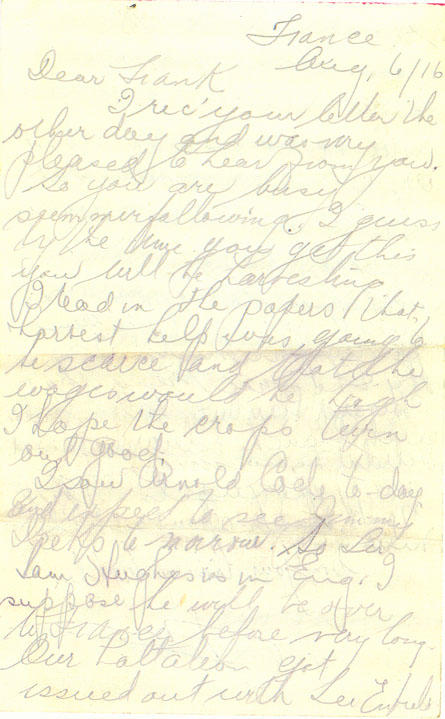 France
Aug, 6/16
Dear Frank
I rec' your letter the
other day and was very
pleased to hear from you.
So you are busy
summerfallowing. I guess
by the time you get this
you will be harvesting
I read in the papers that
harvest help was going to
be scarce and that the
wages would be high
I hope the crops turn
out good.
I saw Arnold to-day
and expect to see
to morrow. So Sir
Sam Hughes is in Eng. I
suppose he will be over
to France before very long.
Our battalion got
issued out with Lee Enfields